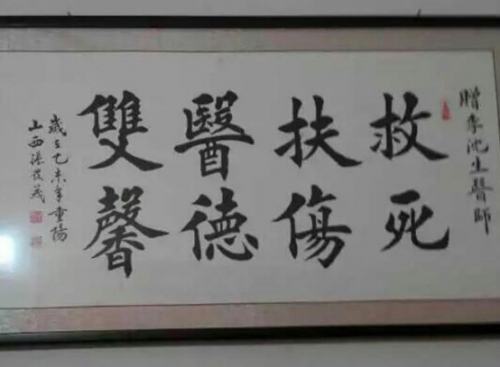 贈李沈生醫師
救死
扶傷
醫德
雙馨
歲在乙未年重陽
山西張